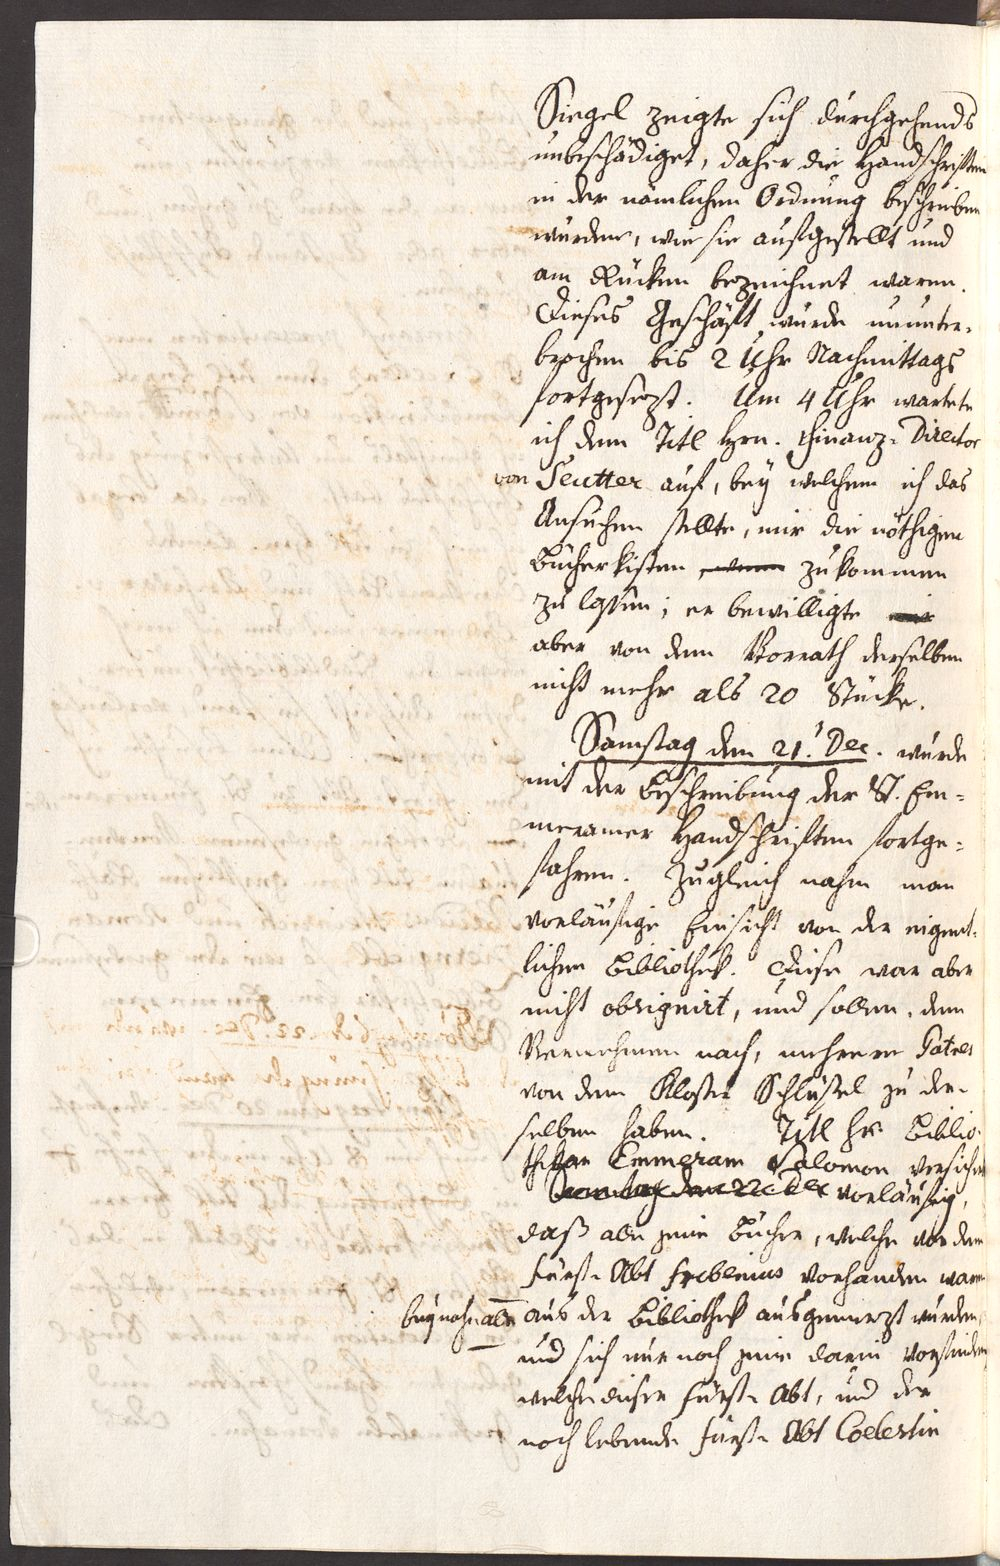 Siegel zeigte sich durchgehends
unbeschädiget, daher die Handschriften
in der nämlichen Ordnung beschrieben
wurden, wie sie aufgestellt und
am Rücken bezeichnet waren.
Dieses Geschäft wurde ununter-
brochen bis 2 Uhr Nachmittags
fortgesezt. Um 4 Uhr wartete
ich dem Titl Hrn. Finanz-Director
von Seutter auf, bey welchem ich das
Ansuchen stellte, mir die nöthigen
Bücherkisten zukommen
zu lassen; er bewilligte mir
aber von dem Vorrath derselben
nicht mehr als 20 Stücke.
Samstag den 21. Dec. wurde
mit der Beschreibung der St. Em-
meramer Handschriften fortge-
fahren. Zugleich nahm man
vorläufige Einsicht von der eigent-
lichen Bibliothek. Diese war aber
nicht obsignirt, und sollen, dem
Vernehmen nach, mehrere Patres
von dem Kloster Schlüssel zu der-
selben haben. Titl Hr. Biblio-
thekar Emmeram Salomon versichert
Sonntag den 22 Dec vorläufig,
daß alle jene Bücher, welche vor dem
Fürst-Abt Frobenius vorhanden waren
beynahe alle aus der Bibliothek ausgemerzt wurden,
und sich nur noch jene darin vorfinden
welche dieser Fürst-Abt, und der
noch lebende Fürst-Abt Coelestin